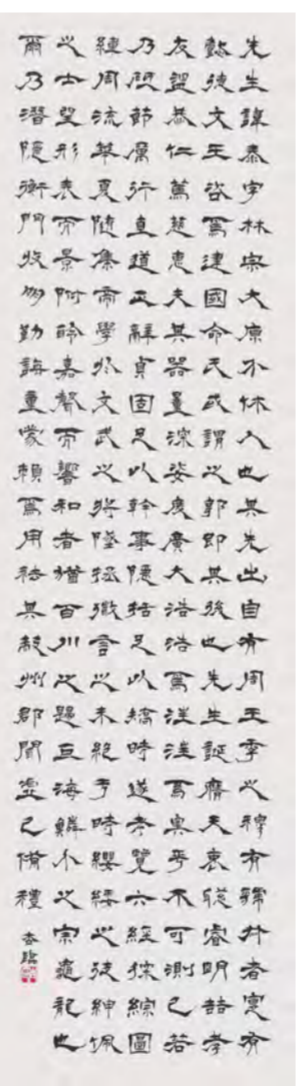 先生諱泰字林宗大原介休人也其先出自有周王季之穆有虢叔者寔有
懿德文王咨焉建國命氏或謂之郭即其後也先生誕膺天衷聦睿明喆孝
友溫恭仁篤慈惠夫其器量深姿度廣大浩浩焉汪汪焉奧乎不可測已若
乃砥節厲行直道正辭貞固足以幹事隱括足以矯時遂考覽六經探綜圖
緯周流華夏隨集帝學於文武之將墜拯微言之未絕于時纓緌之徒紳佩
之士望形表而景附聆嘉聲而響和者猶百川之歸巨海鱗介之宗龜龍也
爾乃潛隱衡門收朋勤誨童蒙賴焉用祛其蔽州郡聞虛己備禮